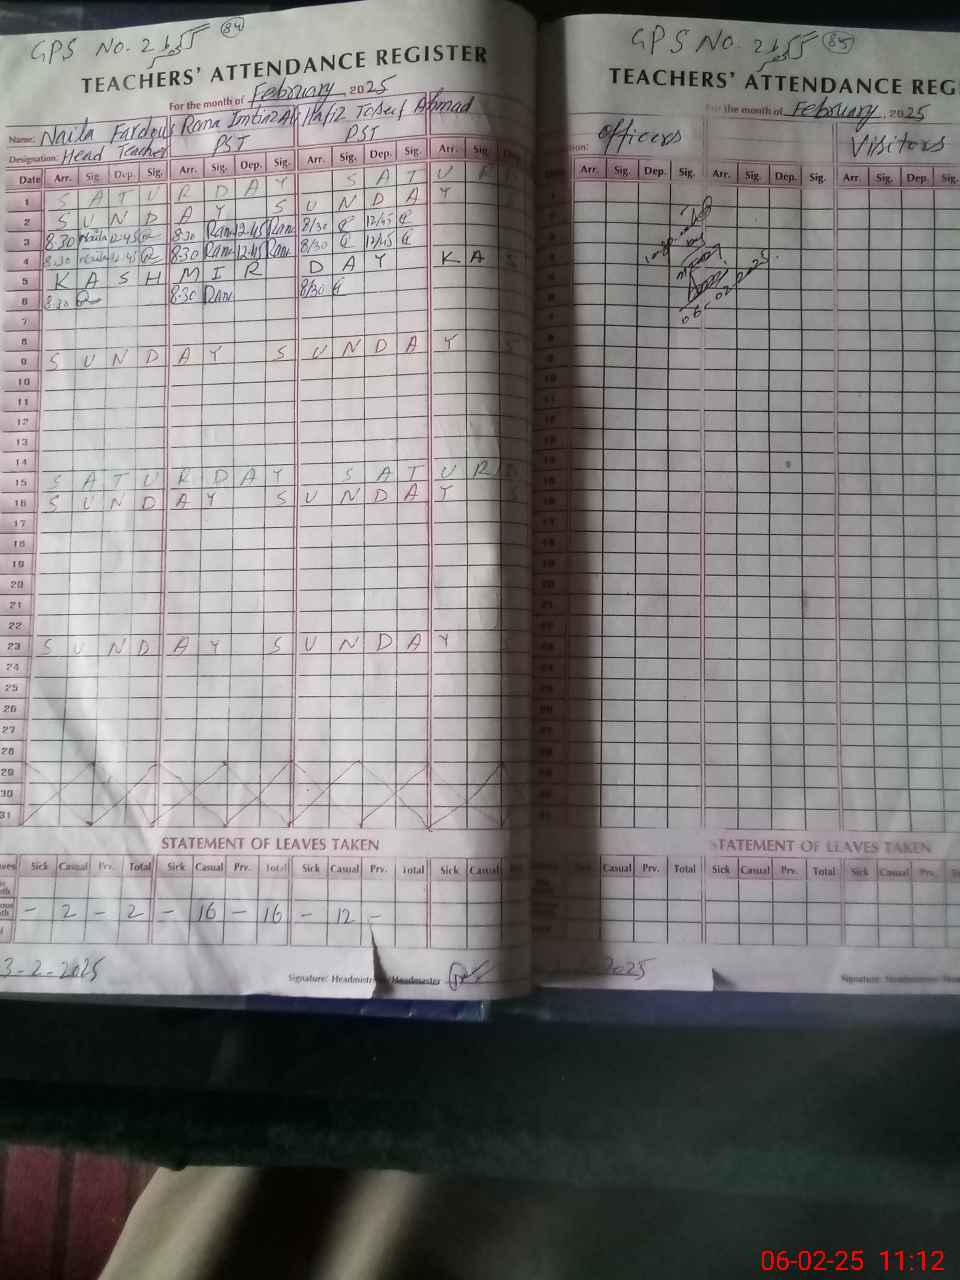 GPS NO. 2 84
TEACHERS' ATTENDANCE REGISTER
For the month of February, 2025
Name: Naila Fardous Rana Imtiaz Ali Hafiz Toseef Ahmad
Designation: Head Teacher PST PST
Date Arr. Sig. Dep. Sig. Arr. Sig. Dep. Sig. Arr. Sig. Dep. Sig. Arr. Sig. Dep.
1 S A T U R D A Y S A T U R D
2 S U N D A Y S U N D A Y S
3 8:30 Naila 12:45 8:30 Rana 12:45 Rana 8/30 12/45
4 8:30 Naila 12:45 8:30 Rana 12:45 Rana 8/30 12/45
5 K A S H M I R D A Y K A S
6 8:30 8:30 Rana 8/30
7
8
9 S U N D A Y S U N D A Y S
10
11
12
13
14
15 S A T U R D A Y S A T U R D
16 S U N D A Y S U N D A Y S
17
18
19
20
21
22
23 S U N D A Y S U N D A Y S
24
25
26
27
28
29
30
31
STATEMENT OF LEAVES TAKEN
Sick Casual Prv. Total Sick Casual Prv. Total Sick Casual Prv. Total Sick Casual
- 2 - 2 - 16 - 16 - 12 -
3-2-2025
Signature: Headmistress/Headmaster
GPS NO. 2 85
TEACHERS' ATTENDANCE REG
For the month of February, 2025
Officers Visitors
Arr. Sig. Dep. Sig. Arr. Sig. Dep. Sig. Arr. Sig.
06-02-2025
STATEMENT OF LEAVES TAKEN
Casual Prv. Total Sick Casual Prv. Total Sick Casual Prv.
2025
Signature: Headmistress
06-02-25 11:12